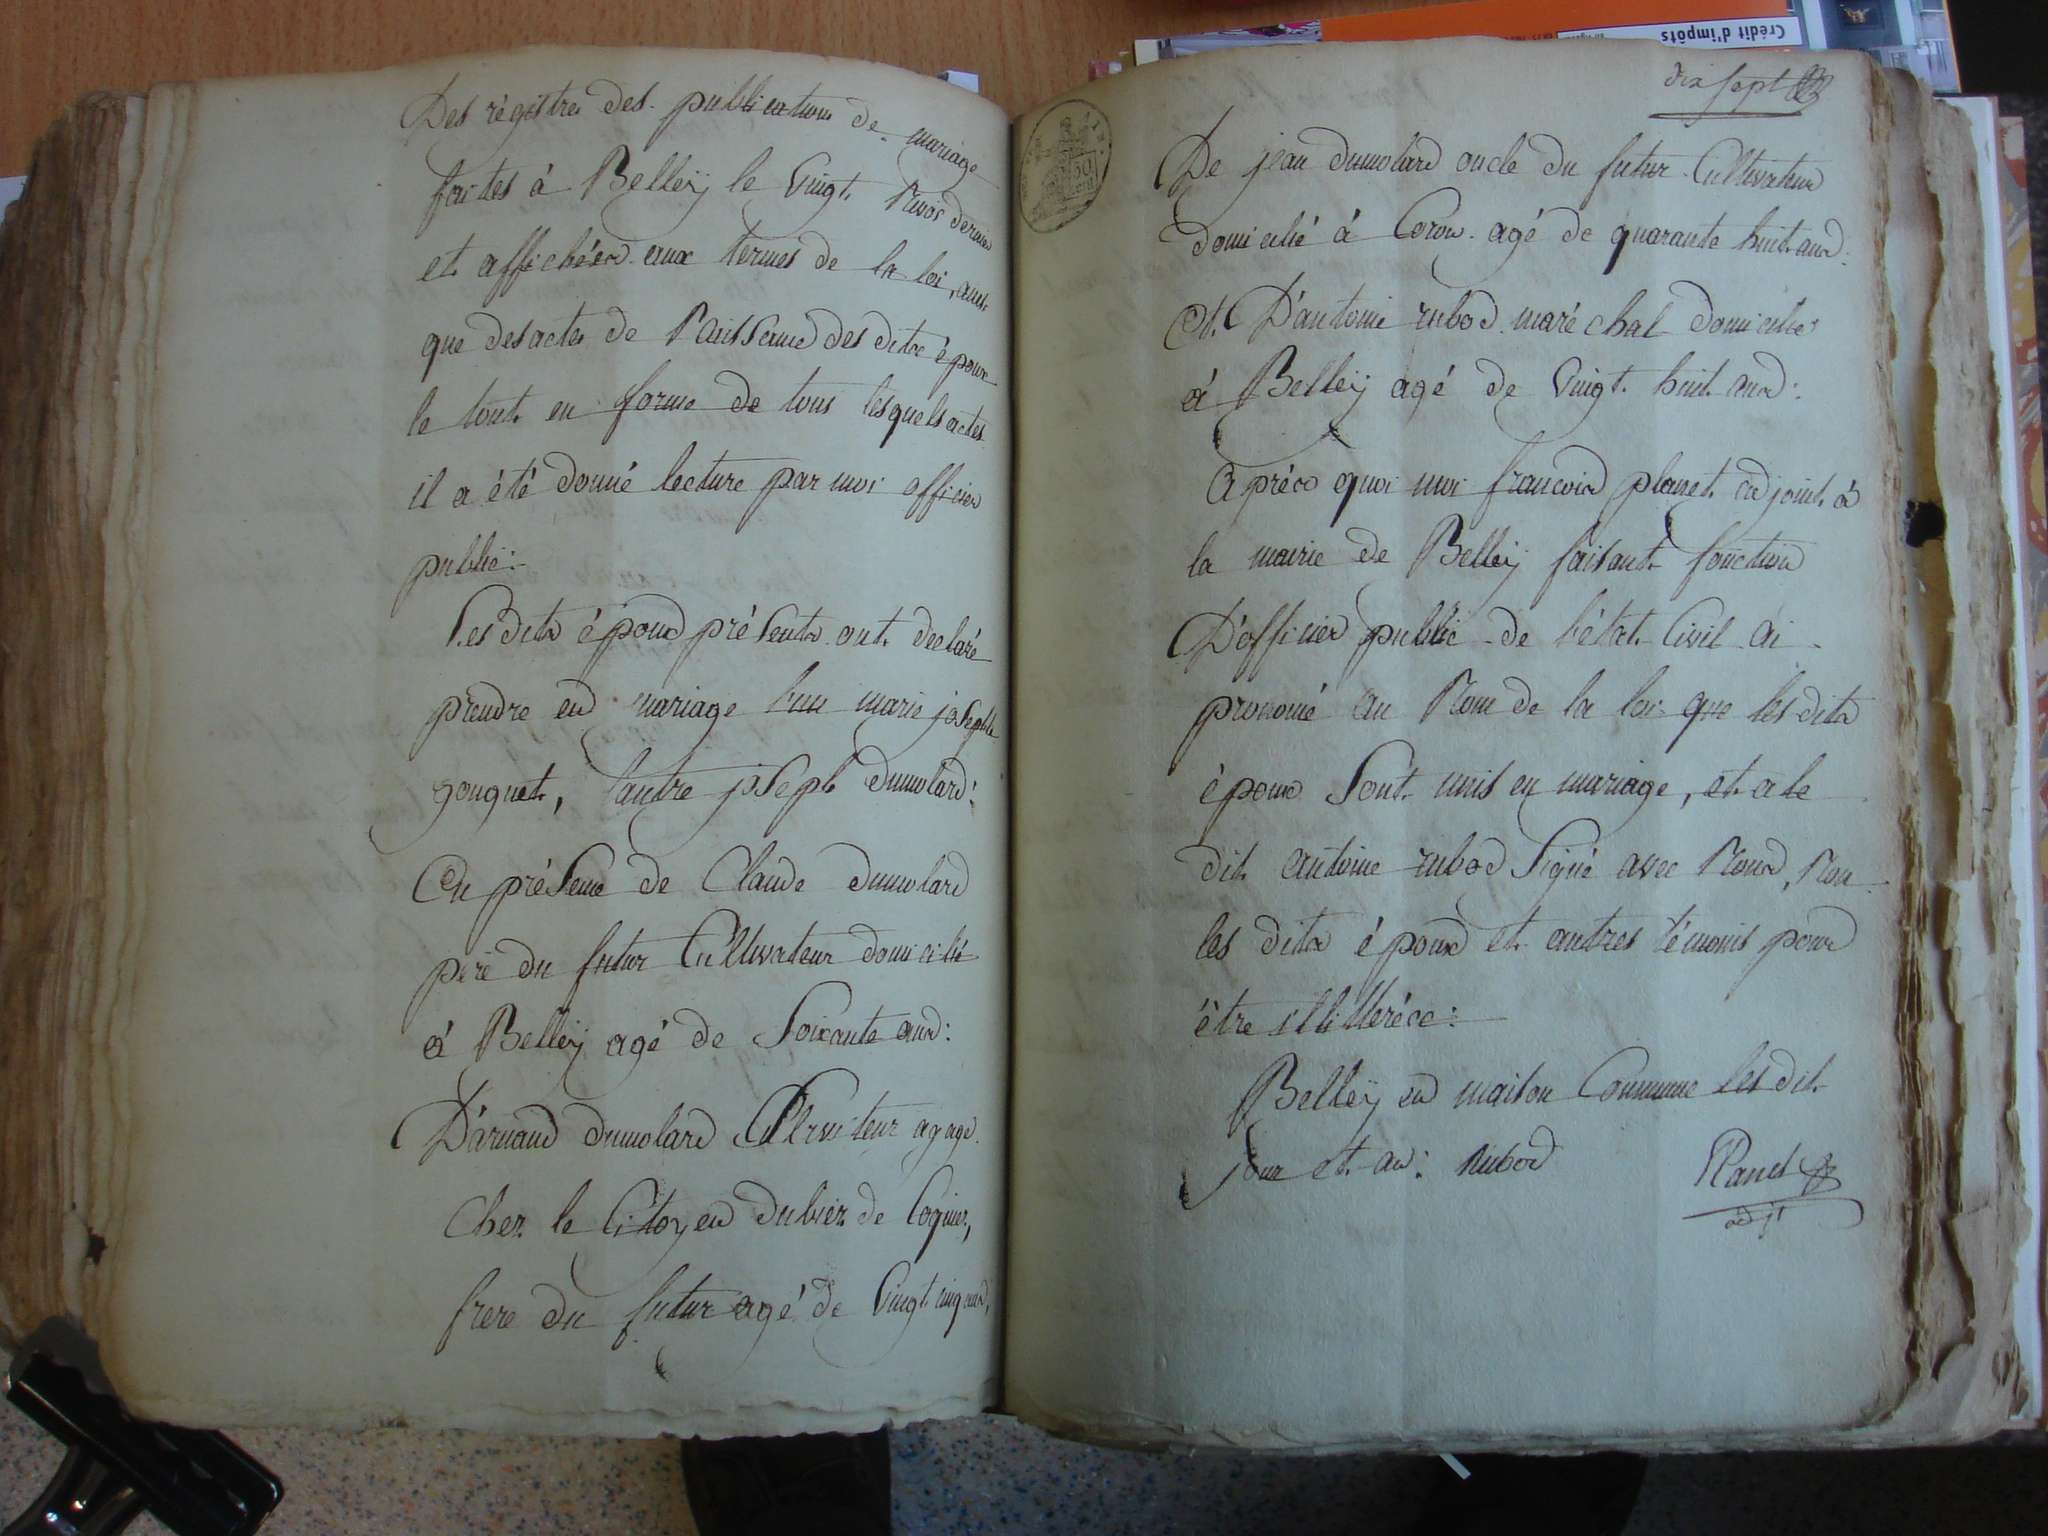 Crédit d'impôts
Des régistres des publications de mariage
faites à Belleÿ le Vingt Nivôs dernier
et affichéea aux termes de la loi, ainsi
que des actes de Naissance des dits époux
le tout en forme de tous lesquels actes
il a été donné lecture par moi officier
public:
Les dits époux présents ont declaré
prendre en mariage l'une marie josephte
gouguet, l'autre joseph dumolard:
En présence de Claude dumolard
père du futur Cultivateur domicilié
à Belleÿ agé de Soixante ans:
D'arnaud dumolard Cultivateur agagé
Chez le Citoyen dubiez de Cognier,
frere du futur agé de Vingt cinq ans,
dix sept
De jean dumolard oncle du futur Cultivateur
domicilié à Coron agé de quarante huit ans:
Et D'antoine rubod maréchal domicilié
à Belleÿ agé de Vingt huit ans:
Après quoi moi francois planet adjoint à
la mairie de Belleÿ faisant fonction
D'officier public de l'état Civil ai
prononcé au Nom de la loi que les dits
époux Sont unis en mariage, et a le
dit antoine rubod Signé avec Nous, Non
les dits époux et autres témoins pour
être illitterées:
Belleÿ en maison Commune les dit
jour et an: Rubod
Planet
adjt